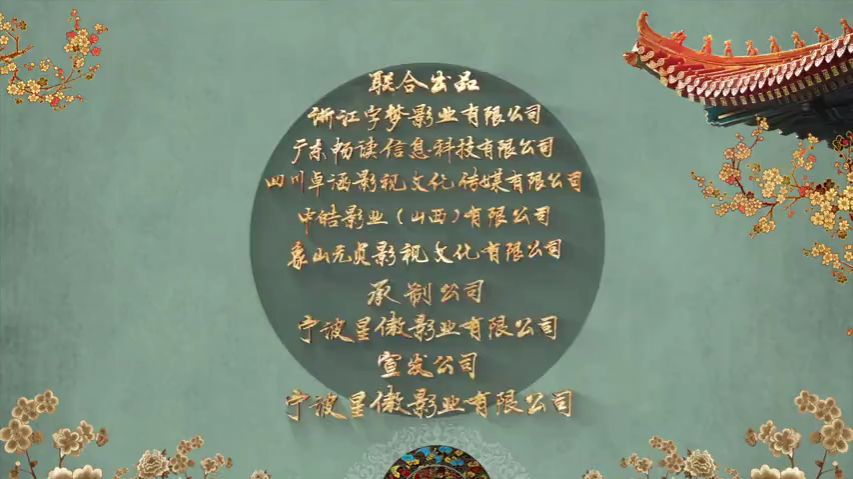 联合出品
浙江字梦影业有限公司
广东畅读信息科技有限公司
四川卓涵影视文化传媒有限公司
中皓影业（山西）有限公司
象山元贞影视文化有限公司
承制公司
宁波星傲影业有限公司
宣发公司
宁波星傲影业有限公司